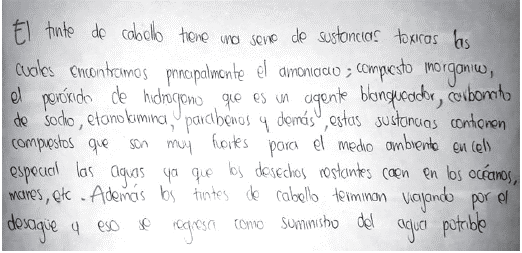 El tinte de cabello tiene una serie de sustancias toxicas las
cuales encontramos principalmente el amoniaco; compuesto inorganico,
el peróxido de hidrogeno que es un agente blanqueador, carbonato
de sodio, etanolamina, parabenos y demás, estas sustancias contienen
compuestos que son muy fuertes para el medio ambiente en
especial las aguas ya que los desechos restantes caen en los océanos,
mares, etc. Además los tintes de cabello terminan viajando por el
desagüe y eso se regresa como suministro del agua potrible